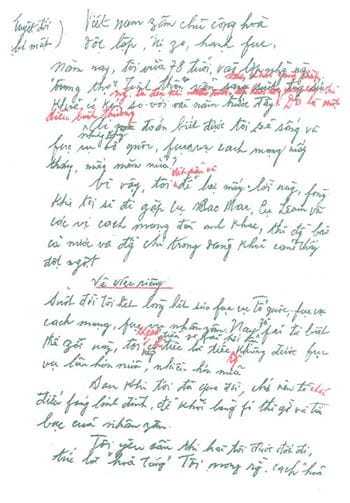 Tuyệt đối
bí mật
Việt nam zân chủ cộng hoà
độc lập, tự zo, hạnh fúc.
Năm nay, tôi vừa 78 tuổi, vào lớp
trung thọ
so với vài năm trước đây. Đó là một
điều bình thường
Nhưng ai mà đoán biết được tôi sẽ sống và
fục vụ tổ quốc, fục vụ cách mạng mấy
tháng, mấy năm nữa?
Vì vậy, tôi để lại mấy lời này, fòng
khi tôi sẽ đi gặp cụ Các Mác, cụ Lênin và
các vị cách mạng đàn anh khác, thì đồng bào
cả nước và đồng chí trong đảng khỏi cảm thấy
đột ngột
Về việc riêng
Suốt đời tôi hết lòng hết sức fục vụ Tổ quốc, fục vụ
cách mạng, fục vụ nhân zân. Nay zù fải từ biệt
thế zới này, tôi không có điều gì fải hối hận
chỉ tiếc là tiếc không được fục
vụ lâu hơn nữa, nhiều hơn nữa
Sau khi tôi đã qua đời, chớ nên tổ chức
điếu fúng linh đình, để khỏi lãng fí thì zờ và tiền
bạc của nhân zân.
Tôi yêu cầu thi hài tôi được đốt đi,
tức là "hoả táng" Tôi mong rằng cách "hoả